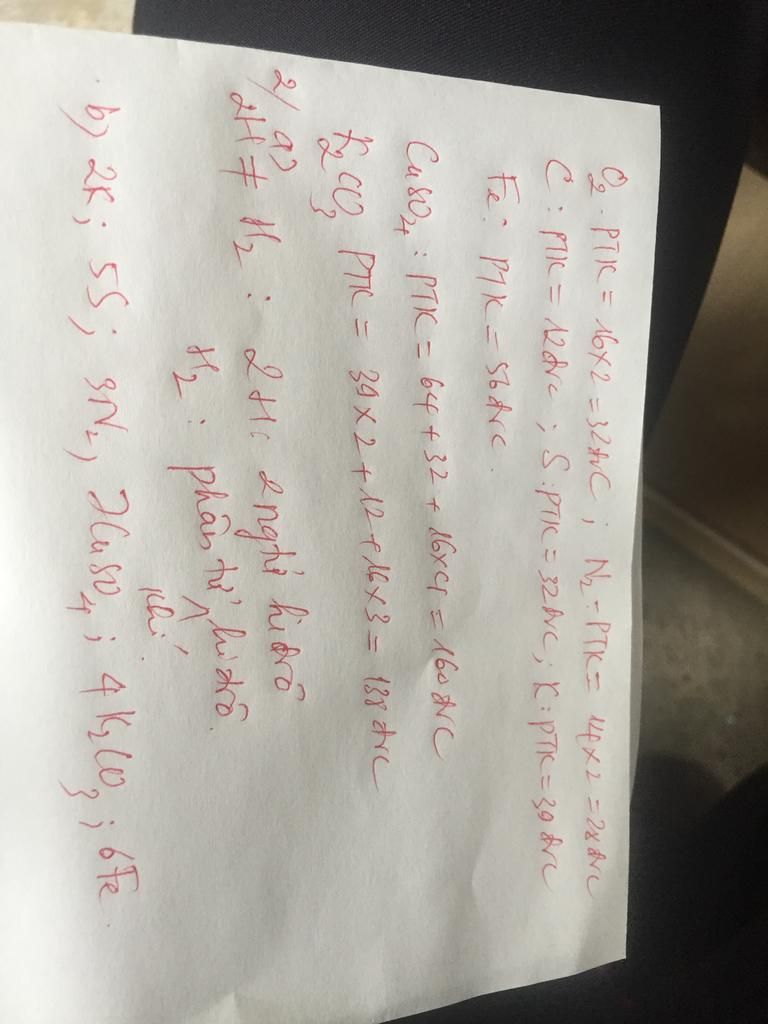 O₂ : PTK = 16x2 = 32đvC ; N₂ : PTK = 14x2 = 28đvC
C : PTK = 12đvC ; S : PTK = 32đvC ; K : PTK = 39đvC
Fe : PTK = 56đvC.
CuSO₄ : PTK = 64 + 32 + 16x4 = 160đvC
K₂CO₃ PTK = 39x2 + 12 + 16x3 = 138đvC
2/ a)
2H ≠ H₂ : 2H : 2 ngtử hiđrô
H₂ : phân tử khí hiđrô.
b) 2K ; 5S ; 3N₂ , 7CuSO₄ ; 4K₂CO₃ ; 6Fe